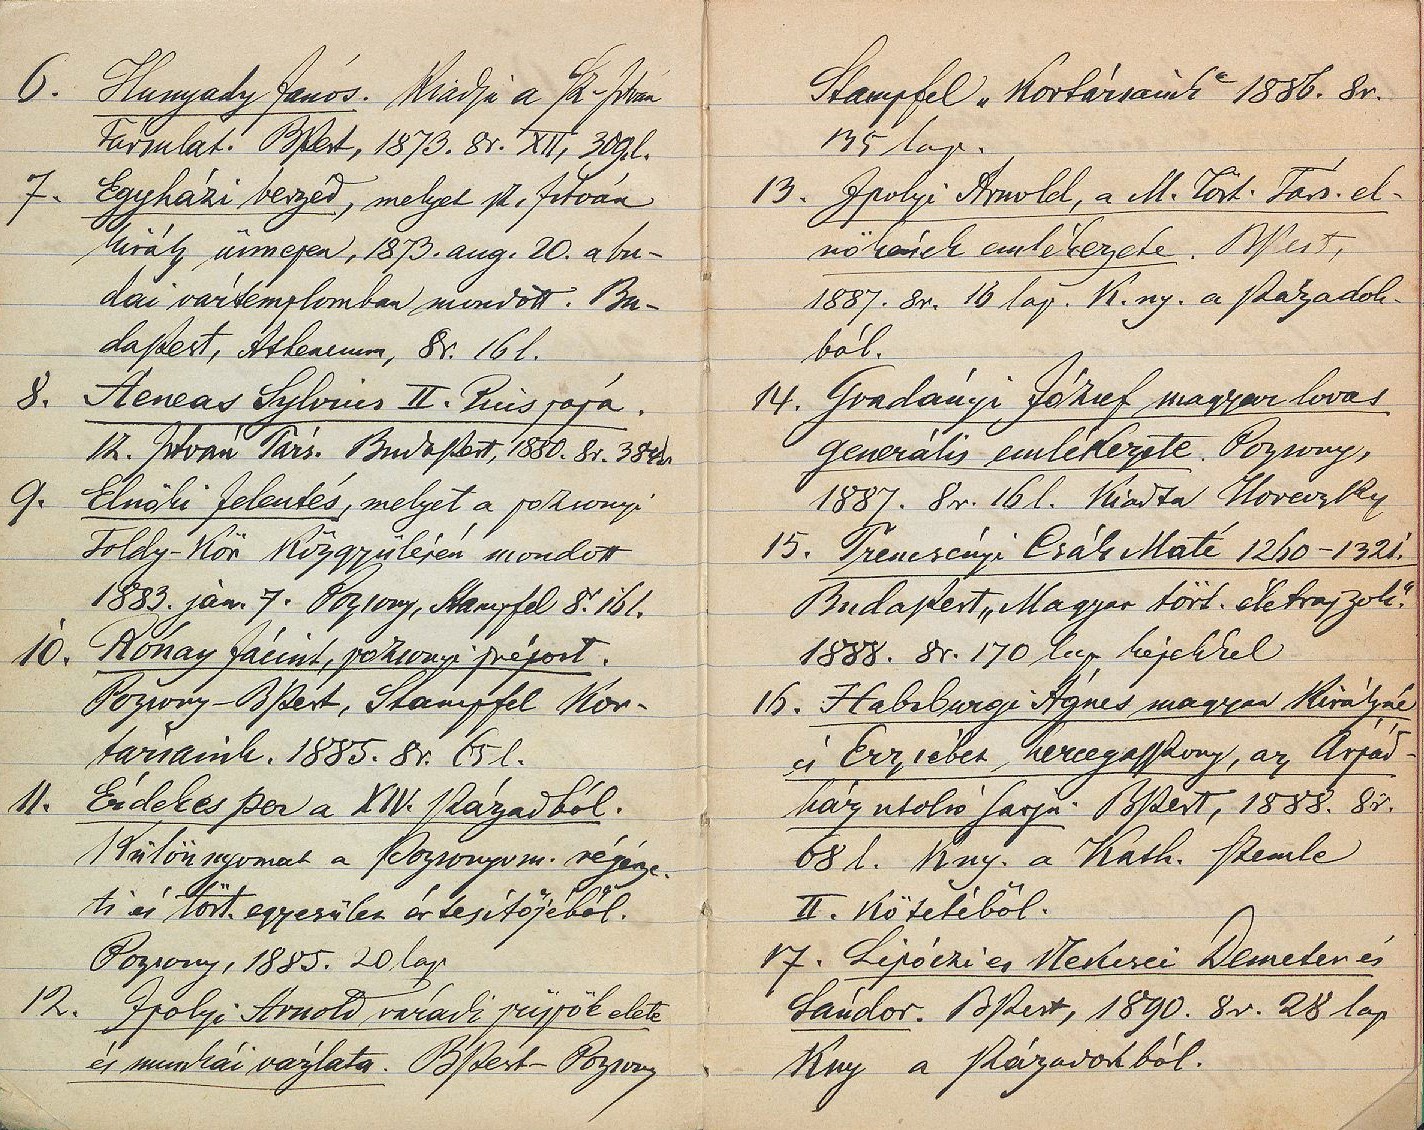 6. Hunyady János. Kiadja a Sz-István
Társulat. BPest, 1873. 8r. XII, 309 l.
7. Egyházi beszéd, melyet sz. István
király ünnepén, 1873. aug. 20. a bu-
dai vártemplomban mondott. Bu-
dapest, Athenaeum, 8r. 16 l.
8. Aeneas Sylvius II. Pius pápa.
sz. István Társ. Budapest, 1880. 8r.
9. Elnöki jelentés, melyet a pozsonyi
Toldy-Kör közgyülésén mondott
1883. ján. 7. Pozsony, Stampfel 8r. 16 l.
10. Rónay Jácint, pozsonyi prépost.
Pozsony-BPest, Stampfel Kor-
társaink. 1885. 8r. 65 l.
11. Érdekes per a XIV. századból.
Különnyomat a Pozsonyvm. régésze-
ti és tört. egyesület értesítőjéből.
Pozsony, 1885. 20 lap
12. Ipolyi Arnold váradi püspök élete
és munkái vázlata. BPest-Pozsony
Stampfel „Kortársaink“ 1886. 8r.
135 lap.
13. Ipolyi Arnold, a M. Tört. Társ. el-
nökének emlékezete. BPest,
1887. 8r. 16 lap. K.ny. a Századok-
ból.
14. Gvadányi József magyar lovas
generális emlékezete. Pozsony,
1887. 8r. 16 l. Kiadta
15. Trencsényi Csák Máté 1260-1321.
Budapest „Magyar tört. életrajzok.“
1888. 8r. 170 lap képekkel
16. Habsburgi Ágnes magyar királyné
és Erzsébet hercegasszony, az Árpád-
ház utolsó sarja. BPest, 1888. 8r.
68 l. Kny. a Kath. szemle
II. Kötetéből.
17. Lipóczi és Nekcsei Demeter és
Sándor. BPest, 1890. 8r. 28 lap
Kny a Századokból.